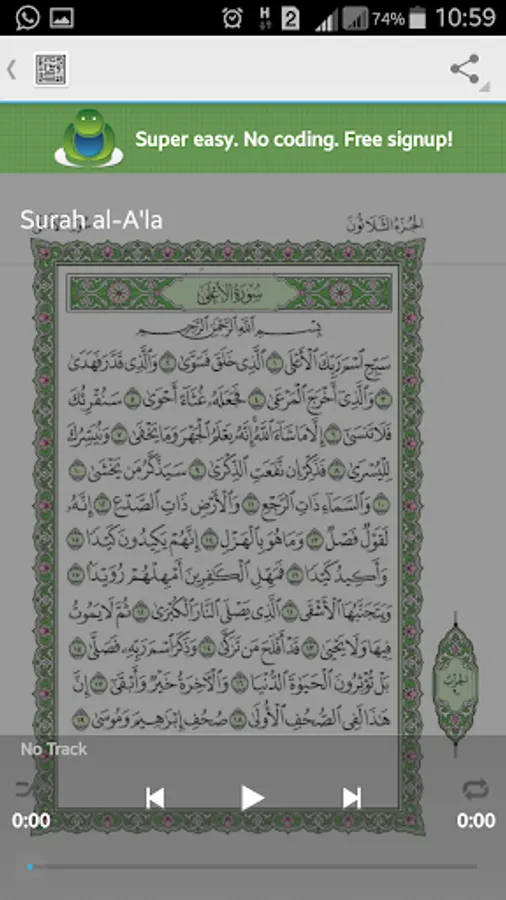 74% 10:59
Super easy. No coding. Free signup!
Surah al-A'la
الجُزءُ الثَّلَاثُونَ
سُورَةُ الأَعْلَىٰ
بِسْمِ ٱللَّهِ ٱلرَّحْمَٰنِ ٱلرَّحِيمِ
سَبِّحِ ٱسْمَ رَبِّكَ ٱلْأَعْلَى ٱلَّذِي خَلَقَ فَسَوَّىٰ وَٱلَّذِي قَدَّرَ فَهَدَىٰ
وَٱلَّذِي أَخْرَجَ ٱلْمَرْعَىٰ فَجَعَلَهُۥ غُثَآءً أَحْوَىٰ سَنُقْرِئُكَ
فَلَا تَنسَىٰ إِلَّا مَا شَآءَ ٱللَّهُ إِنَّهُۥ يَعْلَمُ ٱلْجَهْرَ وَمَا يَخْفَىٰ وَنُيَسِّرُكَ
لِلْيُسْرَىٰ فَذَكِّرْ إِن نَّفَعَتِ ٱلذِّكْرَىٰ سَيَذَّكَّرُ مَن يَخْشَىٰ
وَٱلسَّمَآءِ ذَاتِ ٱلرَّجْعِ وَٱلْأَرْضِ ذَاتِ ٱلصَّدْعِ إِنَّهُۥ
لَقَوْلٌ فَصْلٌ وَمَا هُوَ بِٱلْهَزْلِ إِنَّهُمْ يَكِيدُونَ كَيْدًا
وَأَكِيدُ كَيْدًا فَمَهِّلِ ٱلْكَٰفِرِينَ أَمْهِلْهُمْ رُوَيْدًا
وَيَتَجَنَّبُهَا ٱلْأَشْقَى ٱلَّذِي يَصْلَى ٱلنَّارَ ٱلْكُبْرَىٰ ثُمَّ لَا يَمُوتُ
فِيهَا وَلَا يَحْيَىٰ قَدْ أَفْلَحَ مَن تَزَكَّىٰ وَذَكَرَ ٱسْمَ رَبِّهِۦ فَصَلَّىٰ
بَلْ تُؤْثِرُونَ ٱلْحَيَوٰةَ ٱلدُّنْيَا وَٱلْآخِرَةُ خَيْرٌ وَأَبْقَىٰ إِنَّ
هَٰذَا لَفِي ٱلصُّحُفِ ٱلْأُولَىٰ صُحُفِ إِبْرَٰهِيمَ وَمُوسَىٰ
No Track
0:00 0:00